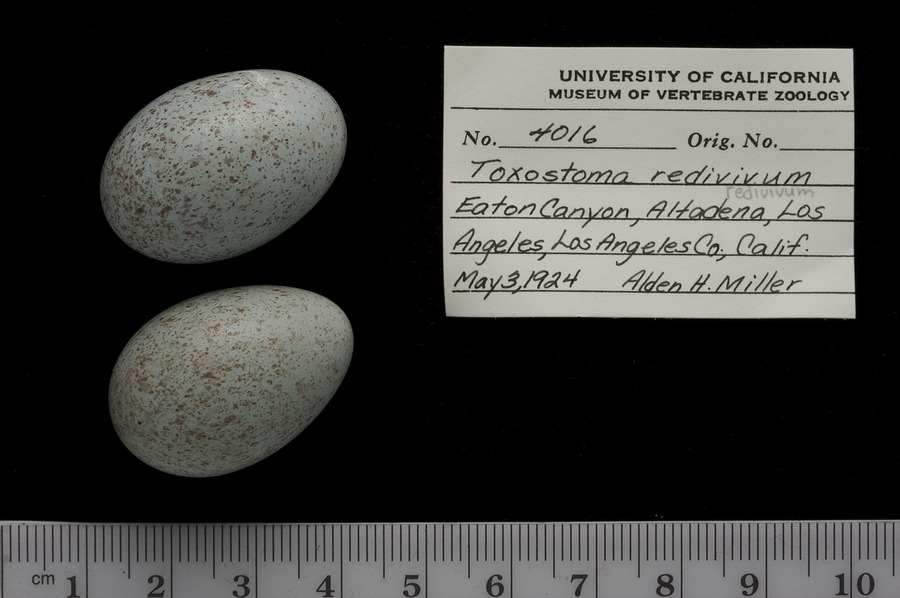 UNIVERSITY OF CALIFORNIA
MUSEUM OF VERTEBRATE ZOOLOGY
No. 4016 Orig. No.
Toxostoma redivivum
redivivum
Eaton Canyon, Altadena, Los
Angeles, Los Angeles Co., Calif.
May 3, 1924 Alden H. Miller
cm 1 2 3 4 5 6 7 8 9 10